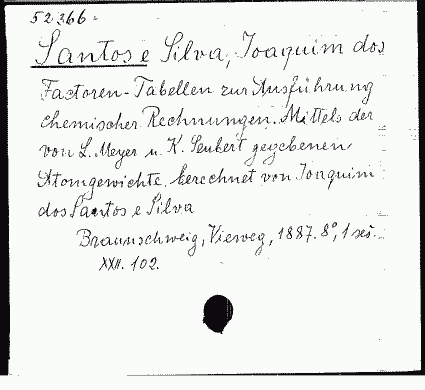 52.366.
Santos e Silva, Joaquim dos
Factoren-Tabellen zur Ausführung
chemischer Rechnungen. Mittels der
von L. Meyer u. K. Seubert gegebenen
Atomgewichte berechnet von Joaquim
dos Santos e Silva
Braunschweig, Vieweg, 1887. 8°, 1 seš.
XXII. 102.